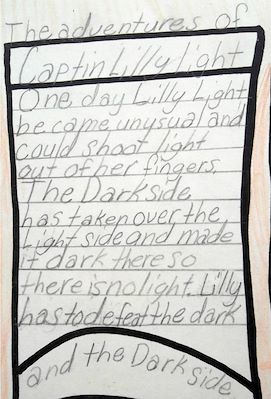 The adventures of
Captin Lilly Light
One day Lilly Light
be came unusual and
could shoot light
out of her fingers.
The Dark side
has taken over the
Light side and made
it dark there so
there is no light. Lilly
has to defeat the dark
and the Dark side